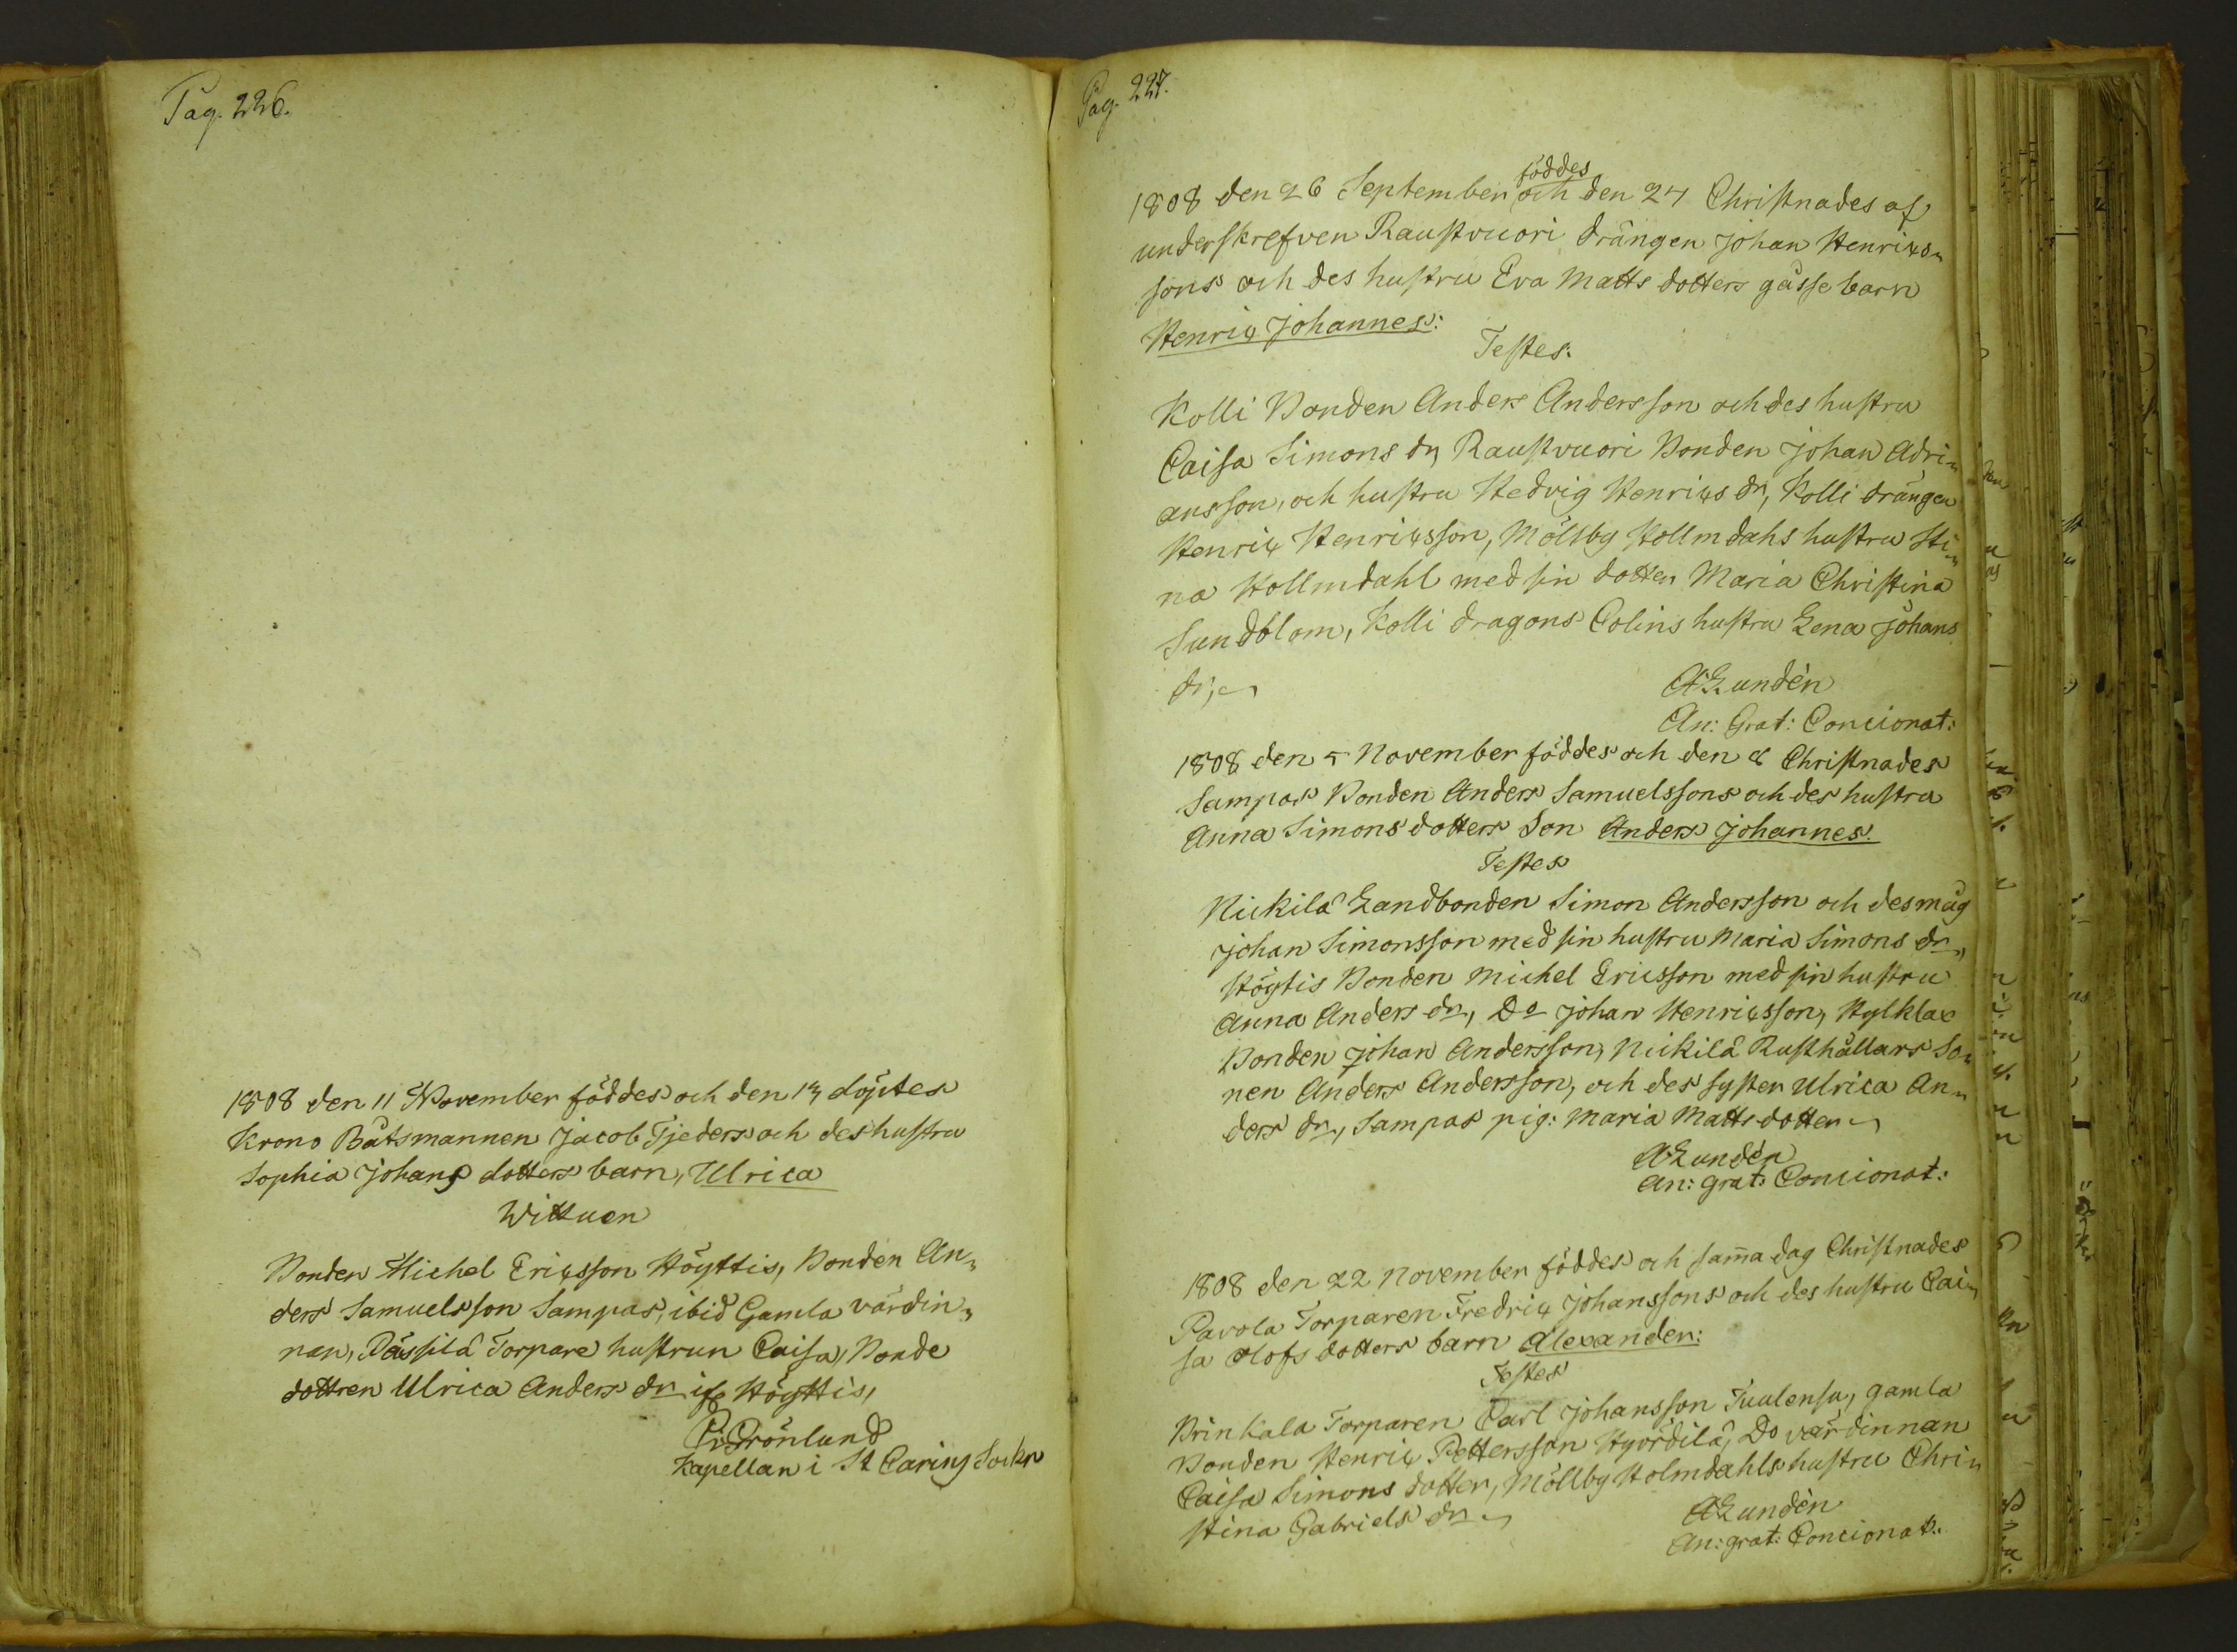 Pag. 226.
1808 den 11 November föddes och den 13 döptes
Krono Båtsmannen Jacob Tjeders och des hustru
Sophia Johans dotters barn, Ulrica
Wittnen
Bonden Michel Ericsson Höyttis, Bonden An„
ders Samuelsson Sampas, ibid Gamla värdin„
nan, Pässilä Torpare hustrun Caisa, Bonde
dottren Ulrica Anders dr Höyttis,
Grönlund
Kapellan i St Carins Sockn
Pag. 227.
föddes
1808 den 26 September och den 27 Christnades af
underskrefven Raustvuori drängen Johan Henrics„
sons och des hustru Eva Matts dotters gåsse barn
Henric Johannes:
Testes:
Kolli Bonden Anders Andersson och des hustru
Caisa Simons dr, Raustvuori Bonden Johan Adri„
ansson, och hustru Hedvig Henrics dr, Kolli drängen
Henric Henricsson, Möllby Hollmdahs hustru Sti„
na Hollmdahl med sin dotter Maria Christina
Sundblom, Kolli dragons Colins hustru Lena Johans
dr,
A Lundén
An: Grat: Concionat:
1808 den 5 November föddes och den 8 Christnades
Sampas Bonden Anders Samuelssons och des hustru
Anna Simons dotters Son Anders Johannes.
Testes
Nickilä Landbonden Simon Andersson och des måg
Johan Simonsson med sin hustru Maria Simons dr,
Höytis Bonden Michel Ericsson med sin hustru
Anna Anders dr, Do Johan Henricsson,
Bonden Johan Andersson, Nickilä Rusthållars So„
nen Anders Andersson, och des syster Ulrica An„
ders dr, Sampas pig: Maria Matts dotter
A Lundén
An: grat: Concionat:
1808 den 22 November föddes och sam̄a dag Christnades
Pavola Torparen Fredric Johanssons och des hustru Cai„
sa Olofs dotters barn Alexander:
Testes
Brinkala Torparen Carl Johansson Tuulensu, gamla
Bonden Henric Pettersson Hyördilä, Do värdinnan
Caisa Simons dotter, Möllby Holmdahls hustru Chri„
stina Gabriels dr
A Lundén
An: grat: Concionat: